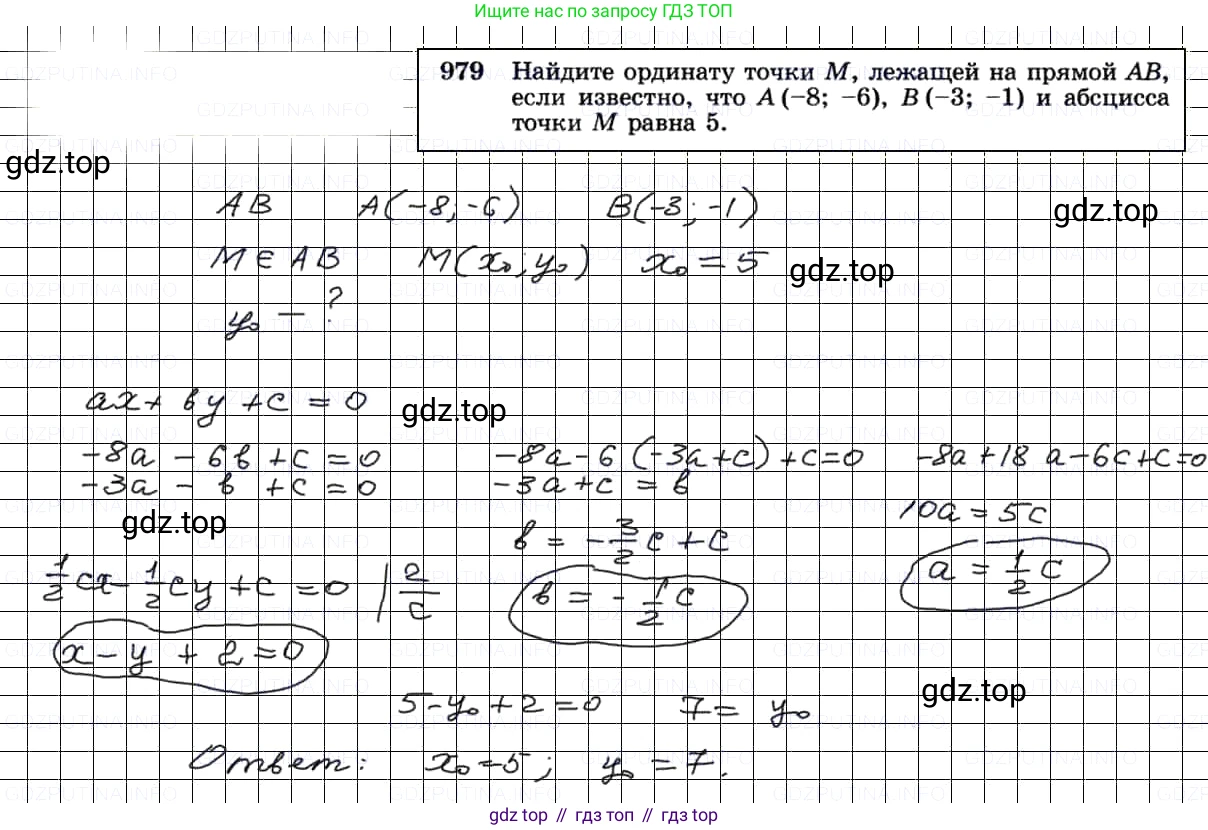 Ищите нас по запросу ГДЗ ТОП
979 Найдите ординату точки M, лежащей на прямой AB,
если известно, что A (−8; −6), B (−3; −1) и абсцисса
точки M равна 5.
gdz.top
AB A(-8;-6) B(-3;-1)
gdz.top
M ∈ AB M(x₀; y₀) x₀ = 5
gdz.top
y₀ - ?
ax + by + c = 0
gdz.top
-8a - 6b + c = 0 -8a-6(-3a+c)+c=0 -8a+18a-6c+c=0
-3a - b + c = 0 -3a+c = b
gdz.top
10a = 5c
b = -3/2 c + c
a = 1/2 c
1/2 cx - 1/2 cy + c = 0 | 2/c
b = - 1/2 c
x - y + 2 = 0
gdz.top
5-y₀+2=0 7= y₀
Ответ: x₀=5; y₀=7.
gdz top // гдз топ // gdz.top